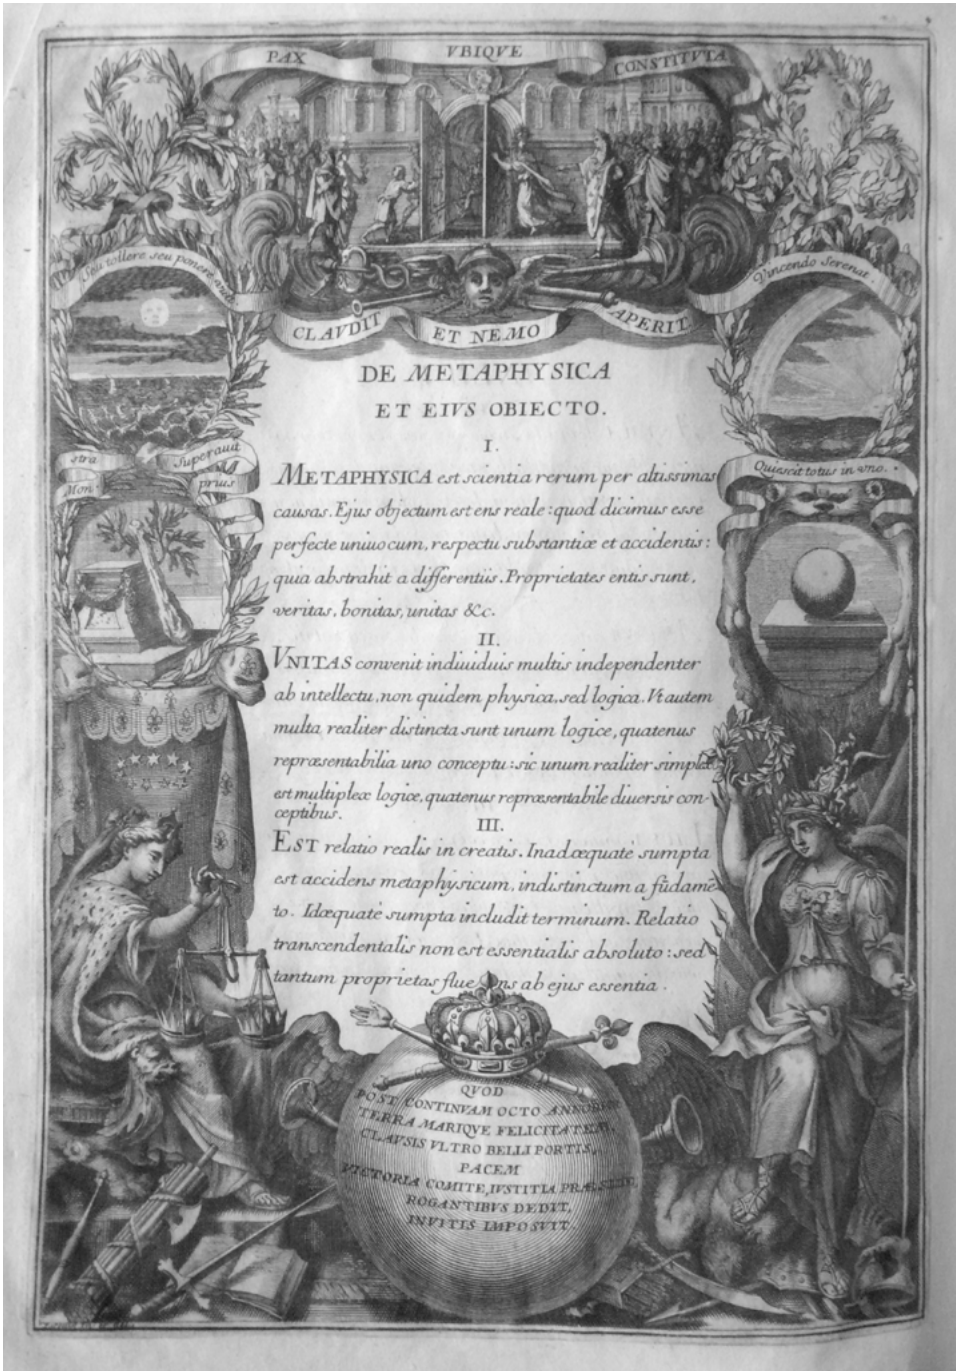 PAX VBIQVE CONSTITVTA
Seu tollere, seu ponere
Vincendo Serenat.
CLAVDIT ET NEMO APERIT.
DE METAPHYSICA
ET EIVS OBIECTO.
I.
METAPHYSICA est scientia rerum per altissimas
causas. Ejus objectum est ens reale: quod dicimus esse
perfecte uniuocum, respectu substantiæ et accidentis:
quia abstrahit a differentiis. Proprietates entis sunt,
veritas, bonitas, unitas &c.
II.
VNITAS convenit indiuiduis multis independenter
ab intellectu, non quidem physica, sed logica. Vt autem
multa realiter distincta sunt unum logice, quatenus
repræsentabilia uno conceptu: sic unum realiter simplex
est multiplex logice, quatenus repræsentabile diuersis con-
ceptibus.
III.
EST relatio realis in creatis. Inadæquatè sumpta
est accidens metaphysicum, indistinctum a fūdamē-
to. Idæquatè sumpta includit terminum. Relatio
transcendentalis non est essentialis absoluto: sed
tantum proprietas flue ns ab ejus essentia.
stra Superauit
Mon prius
Quiescit totus in uno.
QVOD
POST CONTINVAM OCTO ANNORVM
TERRA MARIQVE FELICITATEM,
CLAVSIS VLTRO BELLI PORTIS,
PACEM
VICTORIA COMITE, IVSTITIA PRÆSIDE,
ROGANTIBVS DEDIT,
INVITIS IMPOSVIT.